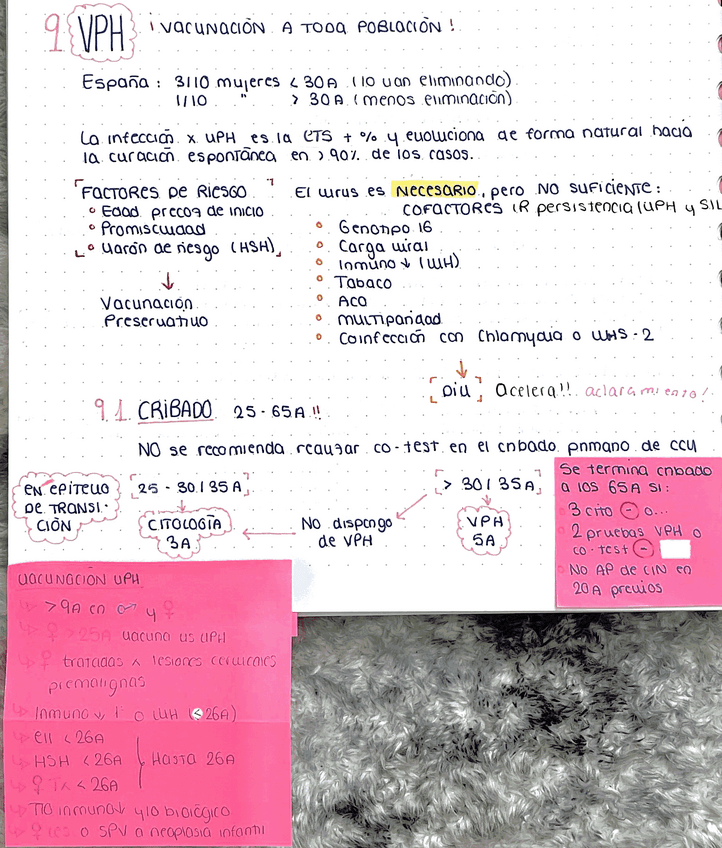 9. VPH ¡VACUNACIÓN A TODA POBLACIÓN!
España: 3/10 mujeres < 30A (lo van eliminando)
1/10 " > 30A (menos eliminación)
La infección x VPH es la ETS + % y evoluciona de forma natural hacia
la curación espontánea en >90% de los casos.
FACTORES DE RIESGO
° Edad precoz de inicio
° Promiscuidad
° Varón de riesgo (HSH)
↓
Vacunación
Preservativo
El virus es NECESARIO, pero NO SUFICIENTE:
COFACTORES (R persistencia (VPH y SIL
° Genotipo 16
° Carga viral
° Inmuno ↓ (VIH)
° Tabaco
° ACO
° Multiparidad
° Coinfección con Chlamydia o VHS-2
↓
[DIU] Acelera!! aclaramiento!
9.1. CRIBADO 25-65A!!
NO se recomienda realizar co-test en el cribado primario de CCU
EN EPITELIO
DE TRANSI-
CIÓN
[25-30/35A]
CITOLOGÍA
3A
No dispongo
de VPH
[> 30/35A]
VPH
5A
Se termina cribado
a los 65A si:
° 3 cito - o...
° 2 pruebas VPH o
co-test -
° No AP de CIN en
20A previos
VACUNACIÓN VPH
↳ >9A en ♂ y ♀
↳ ♀ >25A vacuna vs VPH
↳ ♀ tratadas x lesiones cervicales
premalignas
↳ Inmuno ↓ o VIH (<26A)
↳ EII <26A
↳ HSH <26A
↳ ♀ Tx <26A
Hasta 26A
↳ TTO inmuno↓ y/o biológico
↳ o SPV o neoplasia infantil